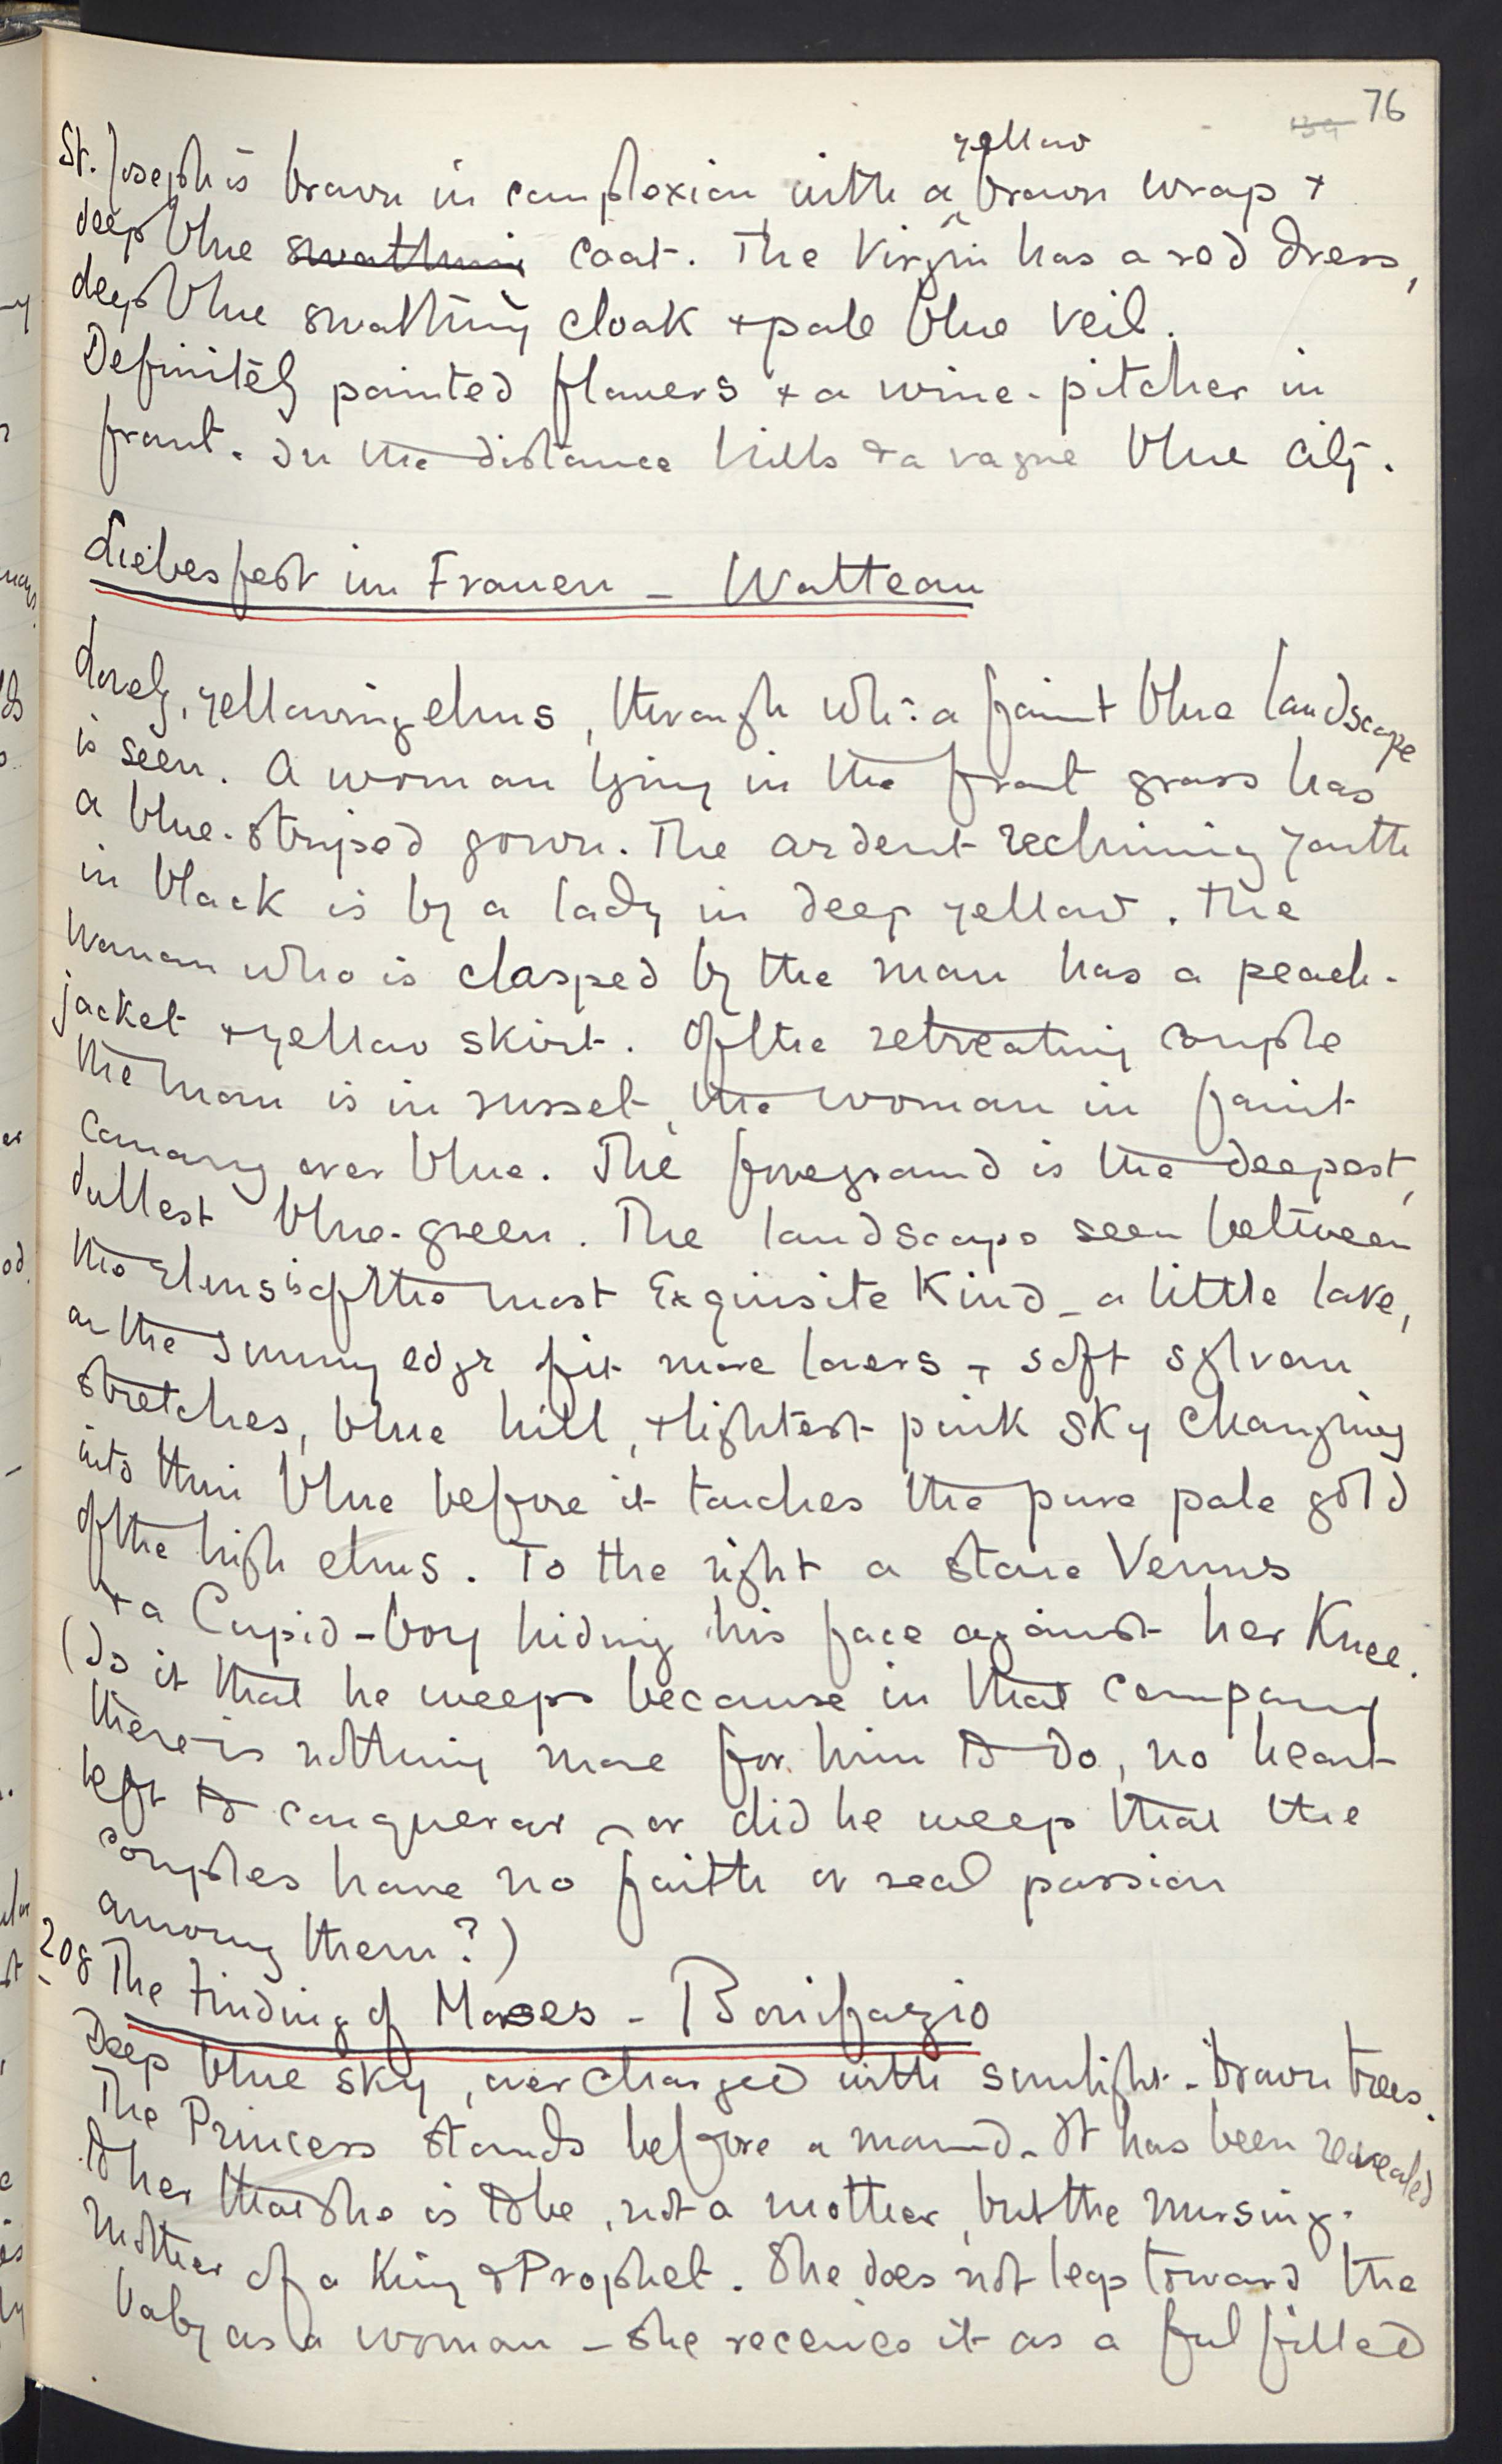 76
yellow
St. Joseph is brown in complexion with a ^ brown wrap +
deep blue swathing coat. The Virgin has a red dress,
deep blue swathing cloak + pale blue veil.
Definitely painted flowers + a wine-pitcher in
front. In the distance hills + a vague blue city.
Liebesfest im Frauen – Watteau
Lovely, yellowing elms, through wh: a faint blue landscape
is seen. A woman lying in the front grass has
a blue-striped gown. The ardent reclining youth
in black is by a lady in deep yellow. The
woman who is clasped by the man has a peach-
jacket + yellow skirt. Of the retreating couple
the man is in russet, the woman in faint
canary over blue. The foreground is the deepest,
dullest blue-green. The landscape seen between
the elms is of the most exquisite kind – a little lake,
on the sunny edge sit more lovers – soft sylvan
stretches, blue hill, + lightest pink sky changing
into thin blue before it touches the pure pale gold
of the high elms. To the right a stone Venus
+ a Cupid-boy hiding his face against her knee.
(Is it that he weeps because in that company
there is nothing more for him to do, no heart
left to conqueror – or did he weep that the
couples have no faith or real passion
among them?)
208 The Finding of Moses – Bonifazio
Deep blue sky, overcharged with sunlight – brown trees.
The Princess stands before a mound. It has been revealed
to her that she is to be, not a mother, but the nursing-
mother of a King & Prophet. She does not leap toward the
baby as a woman – she receives it as a fulfilled